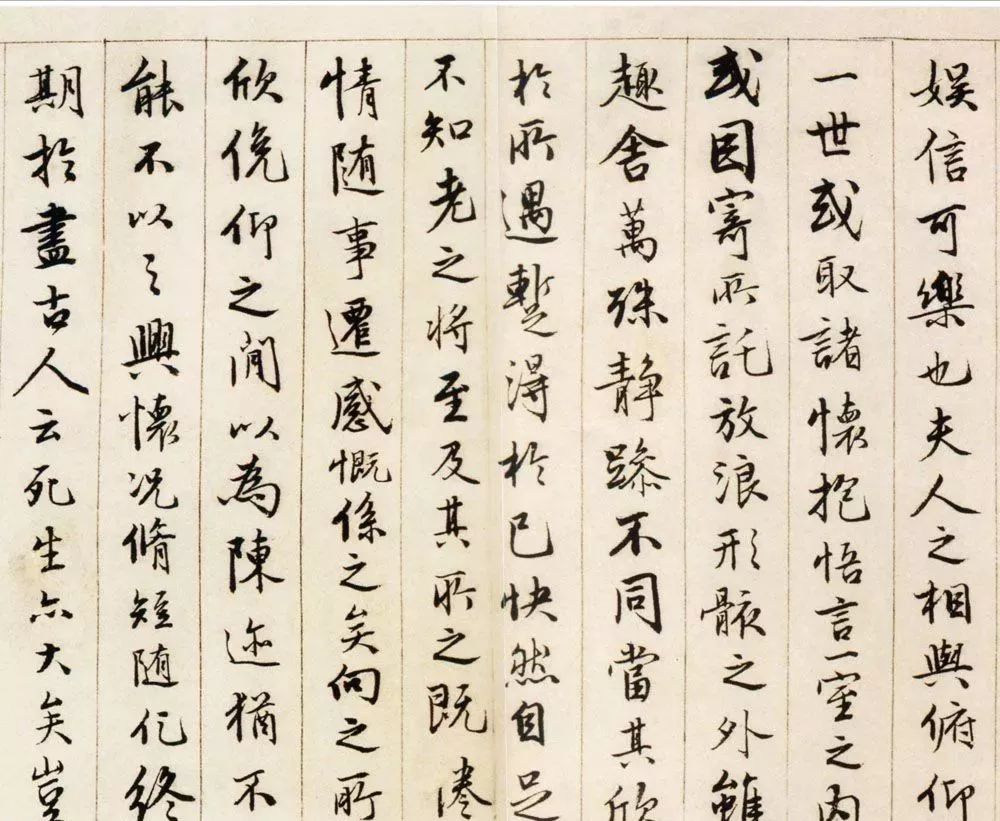 娛信可樂也夫人之相與俯仰
一世或取諸懷抱悟言一室之內
或因寄所託放浪形骸之外雖
趣舍萬殊静躁不同當其欣
於所遇暫得於己快然自足
不知老之將至及其所之既惓
情随事遷感慨係之矣向之所
欣俛仰之閒以為陳迹猶不
能不以之興懷况脩短随化終
期於盡古人云死生亦大矣豈